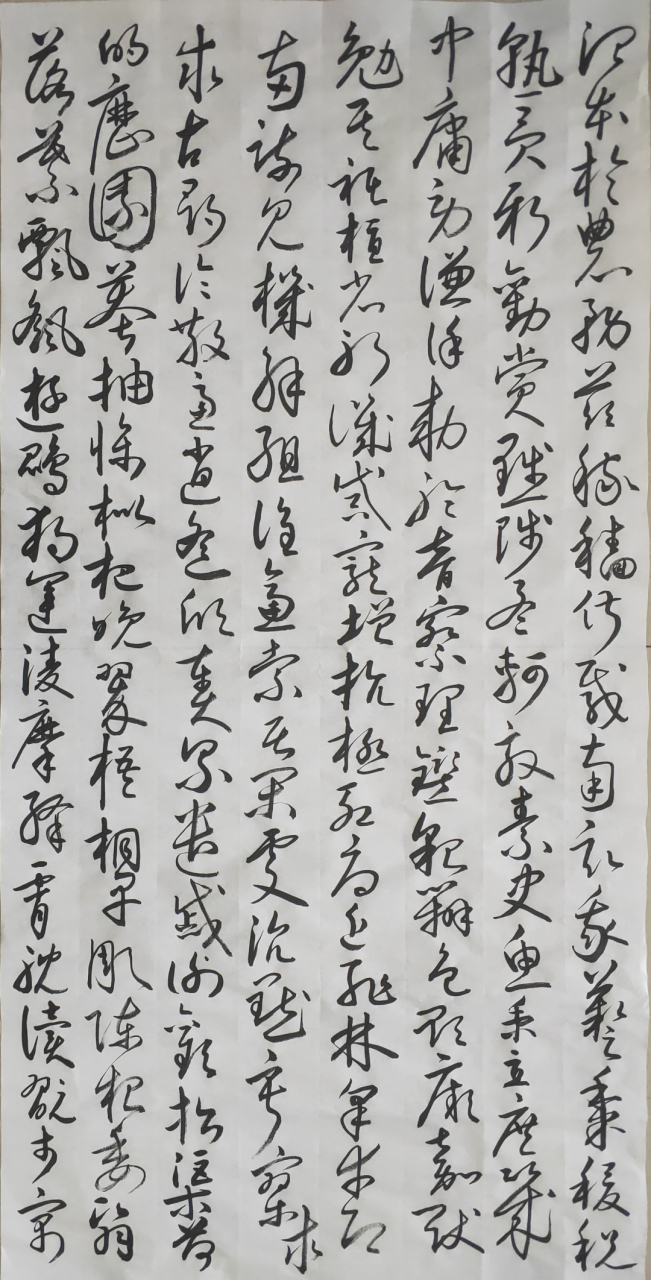 治本於農務茲稼穡俶載南畝我藝黍稷稅
熟貢新勸賞黜陟孟軻敦素史魚秉直庶幾
中庸勞謙謹敕聆音察理鑑貌辨色貽厥嘉猷
勉其祗植省躬譏誡寵增抗極殆辱近恥林皋幸即
兩疏見機解組誰逼索居閑處沉默寂寥求
求古尋論散慮逍遙欣奏累遣慼謝歡招渠荷
的歷園莽抽條枇杷晚翠梧桐早彫陳根委翳
落葉飄颻遊鵾獨運淩摩絳霄耽讀翫市寓